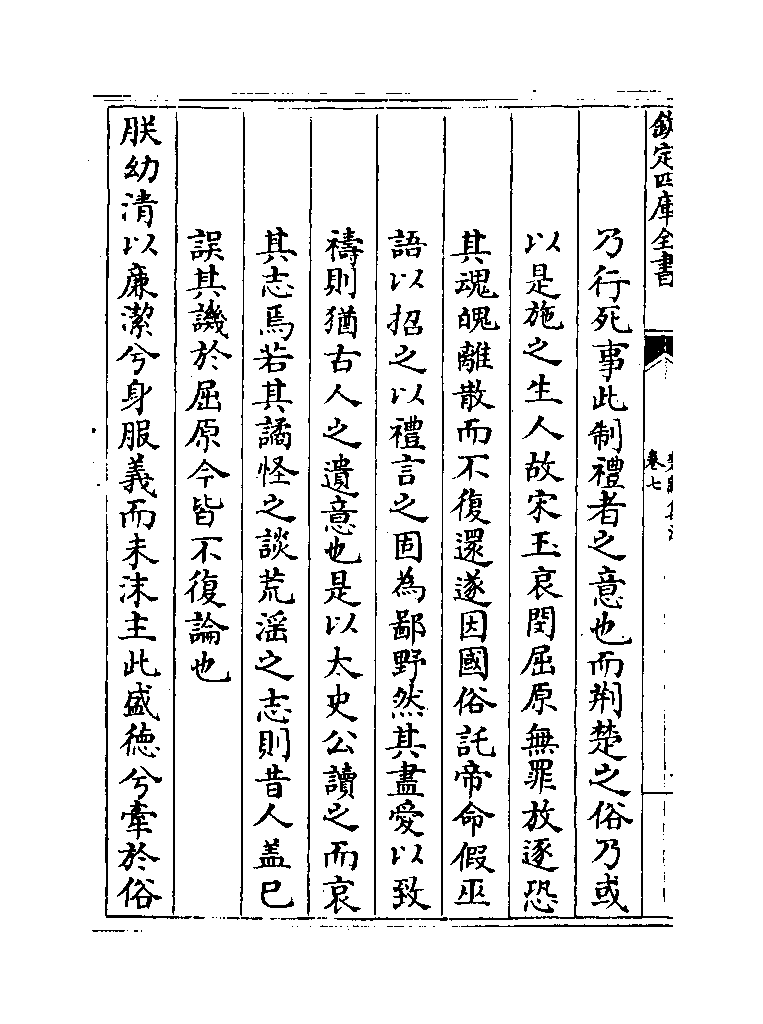 欽定四庫全書
卷七
乃行死事此制禮者之意也而荆楚之俗乃或
以是施之生人故宋玉哀閔屈原無罪放逐恐
其魂魄離散而不復還遂因國俗託帝命假巫
語以招之以禮言之固為鄙野然其盡愛以致
禱則猶古人之遺意也是以太史公讀之而哀
其志焉若其譎怪之談荒淫之志則昔人盖已
誤其譏於屈原今皆不復論也
朕幼清以廉潔兮身服義而未沬主此盛德兮牽於俗